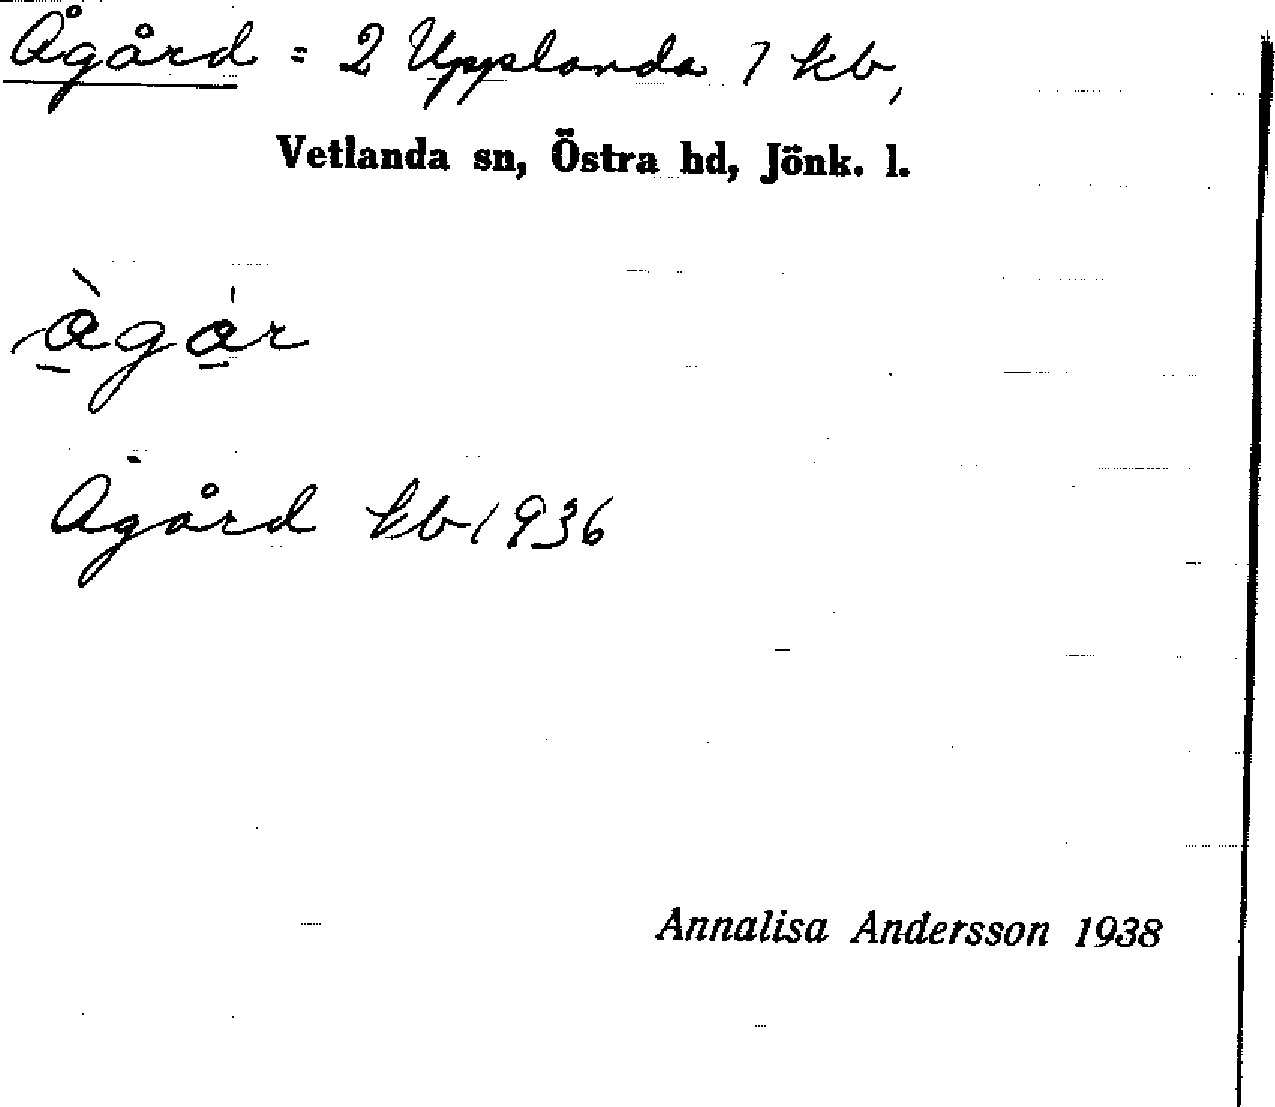 Ågård = 2 Upplanda 7 kb,
Vetlanda sn, Östra hd, Jönk. l.
Ågård kb 1936
Annalisa Andersson 1938